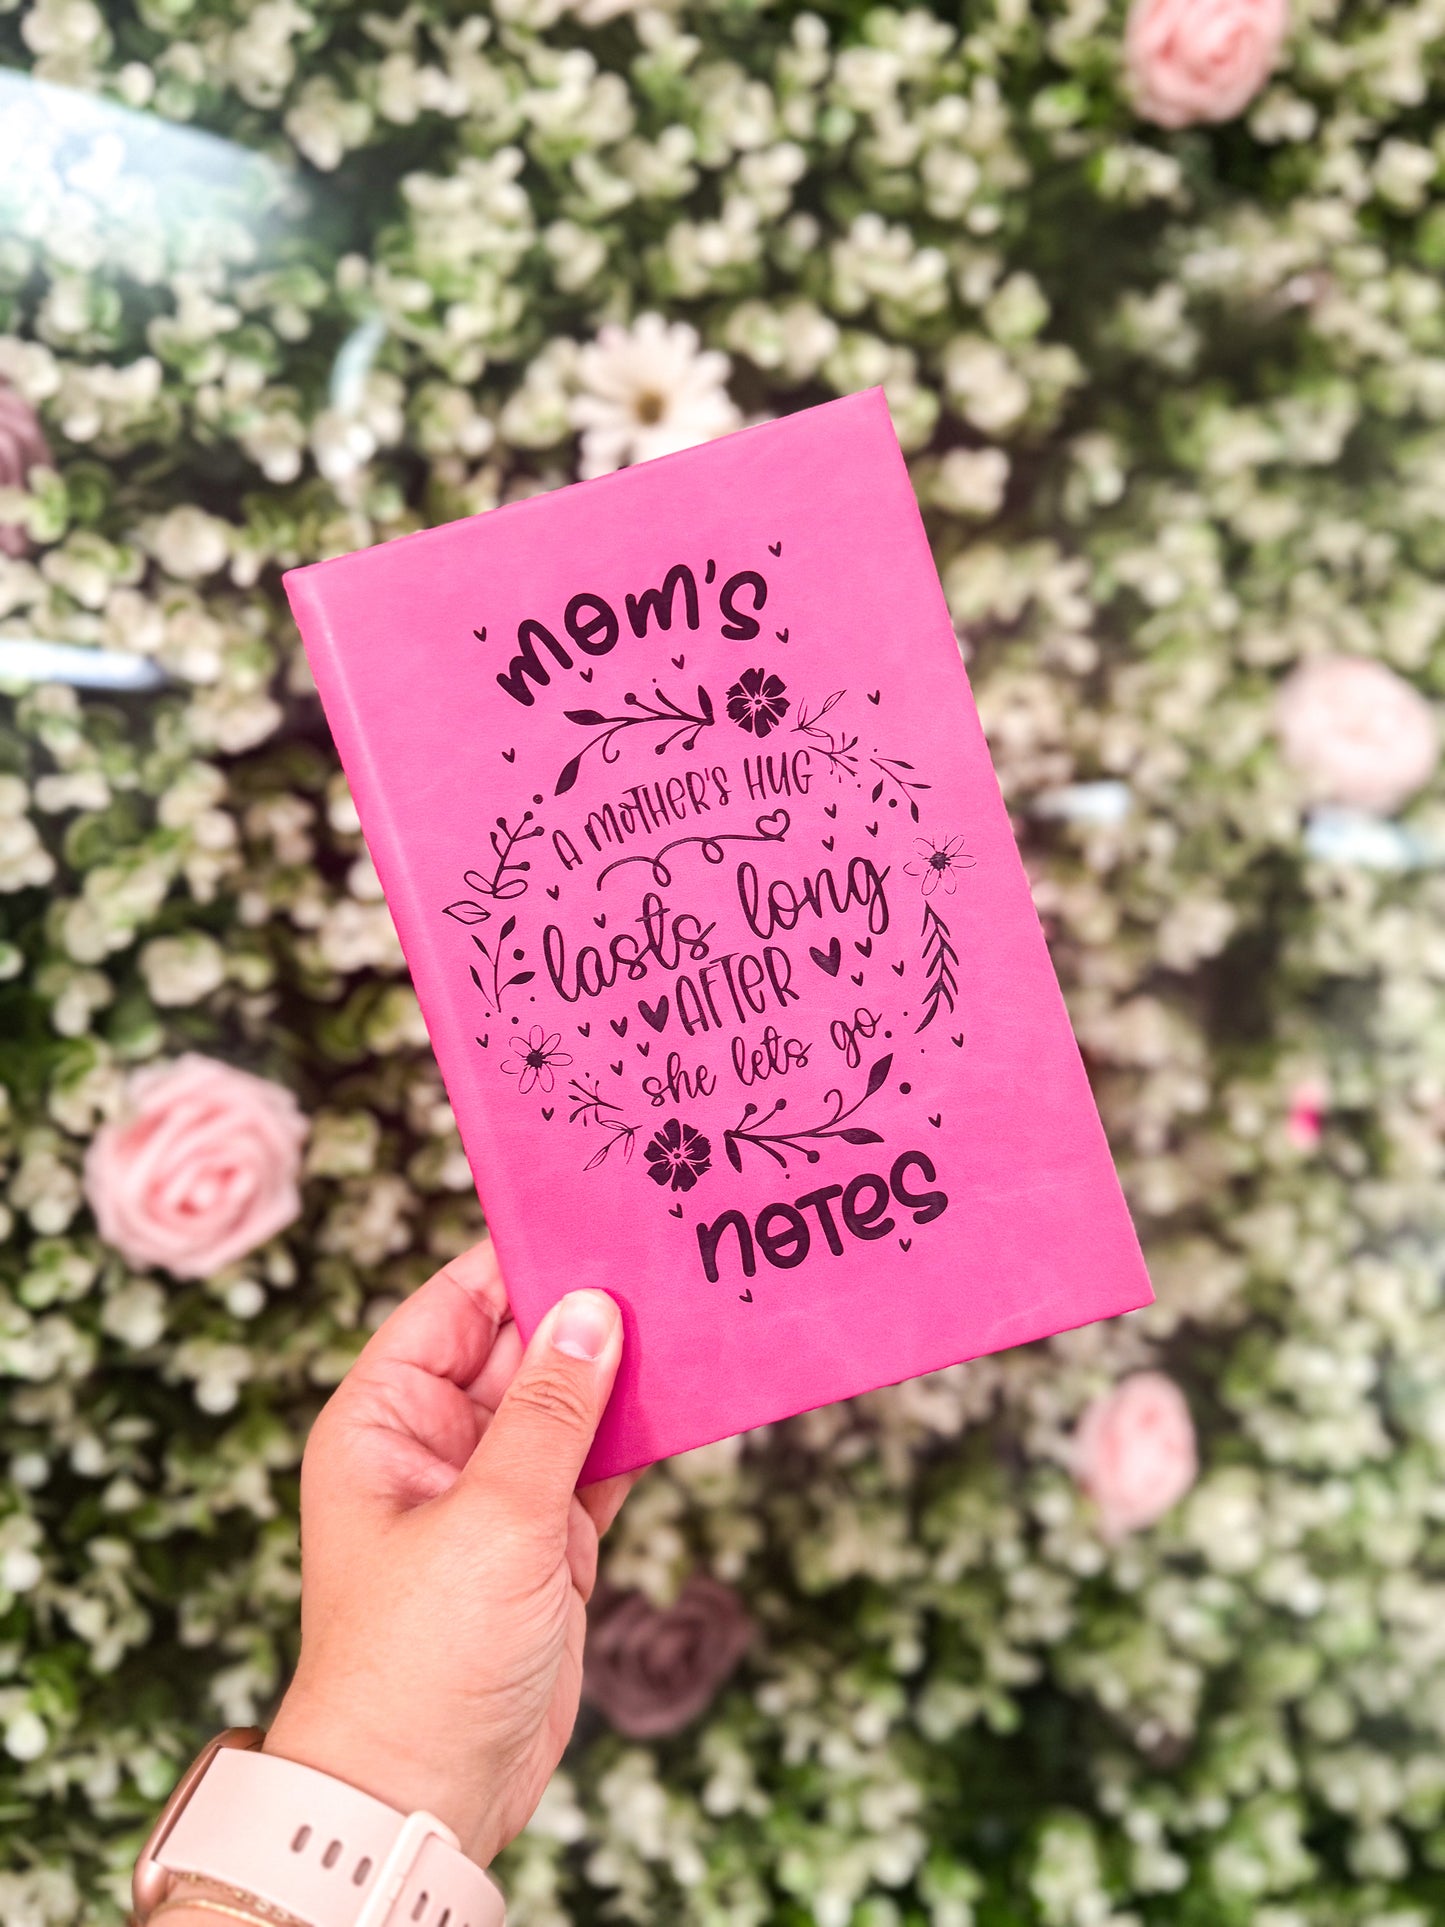 mom's
A MOTHER'S HUG
lasts long
AFTER
she lets go.
NOTES